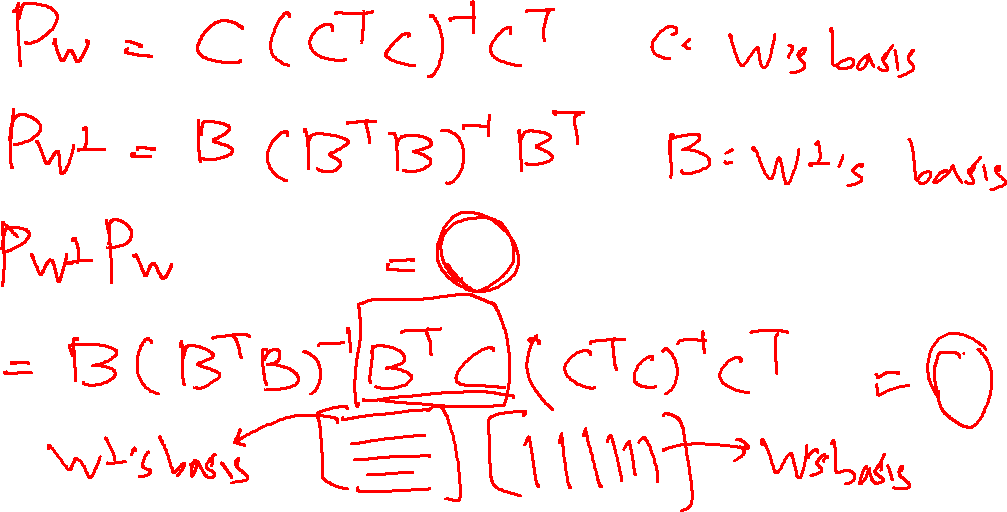 P_W = C (CᵀC)⁻¹ Cᵀ C: W's basis
P_W⊥ = B (BᵀB)⁻¹ Bᵀ B: W⊥'s basis
P_W⊥ P_W = O
= B (BᵀB)⁻¹ Bᵀ C (CᵀC)⁻¹ Cᵀ = O
W⊥'s basis W's basis